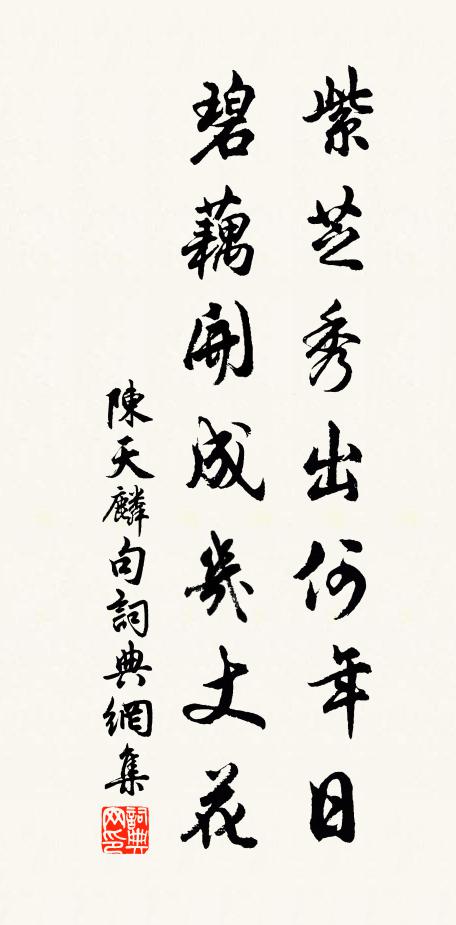 紫芝秀出何年日
碧藕開成幾丈花
陳天麟句詞典網集
詞典网印